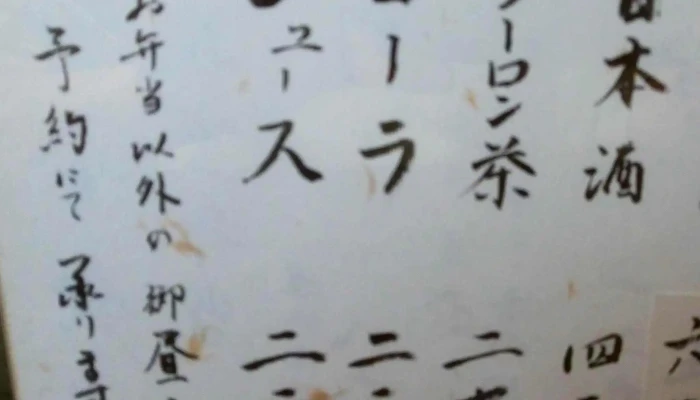 六
日本酒 四
ウーロン茶 二
コーラ 二
ュース 二
お弁当以外の御昼
予約にて承ります